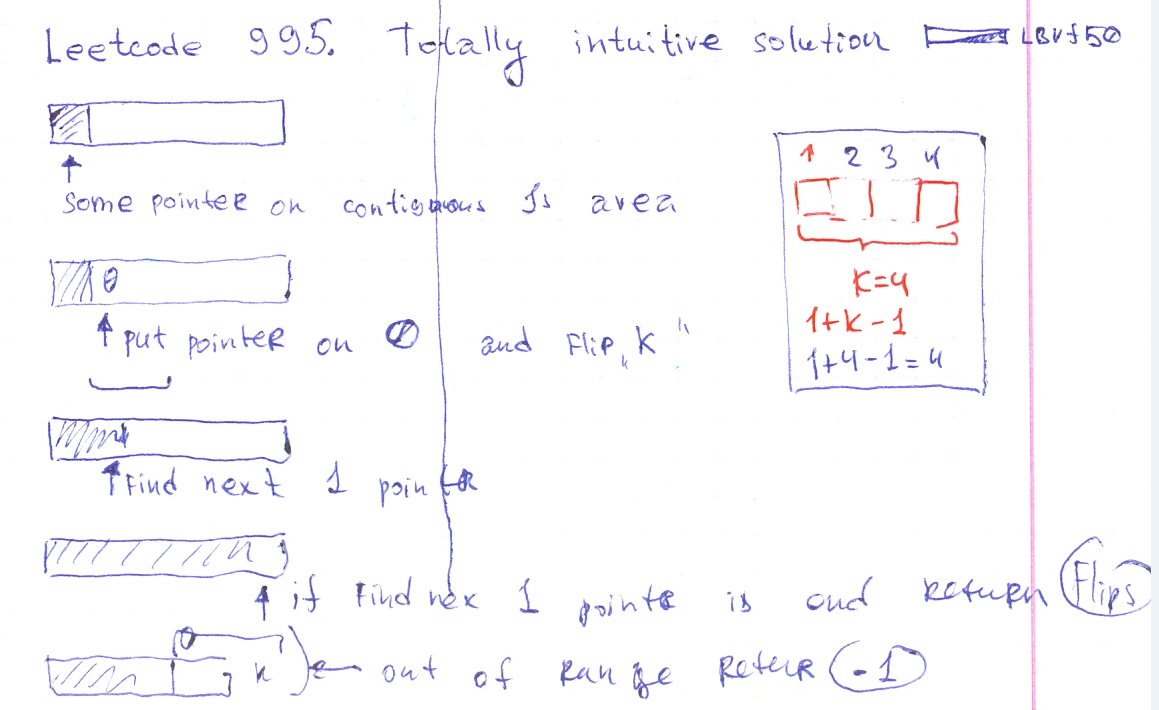 Leetcode 995. Totally intuitive solution LBVS50
Some pointer on contiguous 1s area
0
put pointer on 0 and Flip „K"
Find next 1 pointer
if Find nex 1 pointe is end return Flips
0
K out of Range Retur -1
1 2 3 4
K=4
1+K-1
1+4-1=4